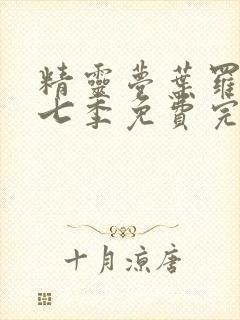 精靈夢葉羅
七季免費完
十月涼唐